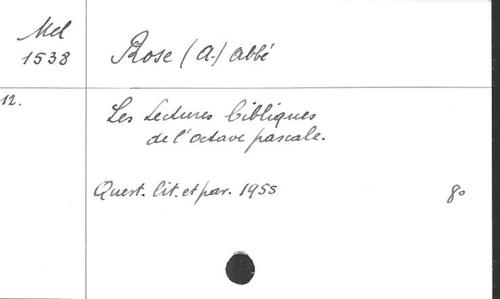 Mel
1538
Rose (A.) abbé
12.
Les Lectures bibliques
de l'octave pascale.
Quest. lit. et par. 1955 8o